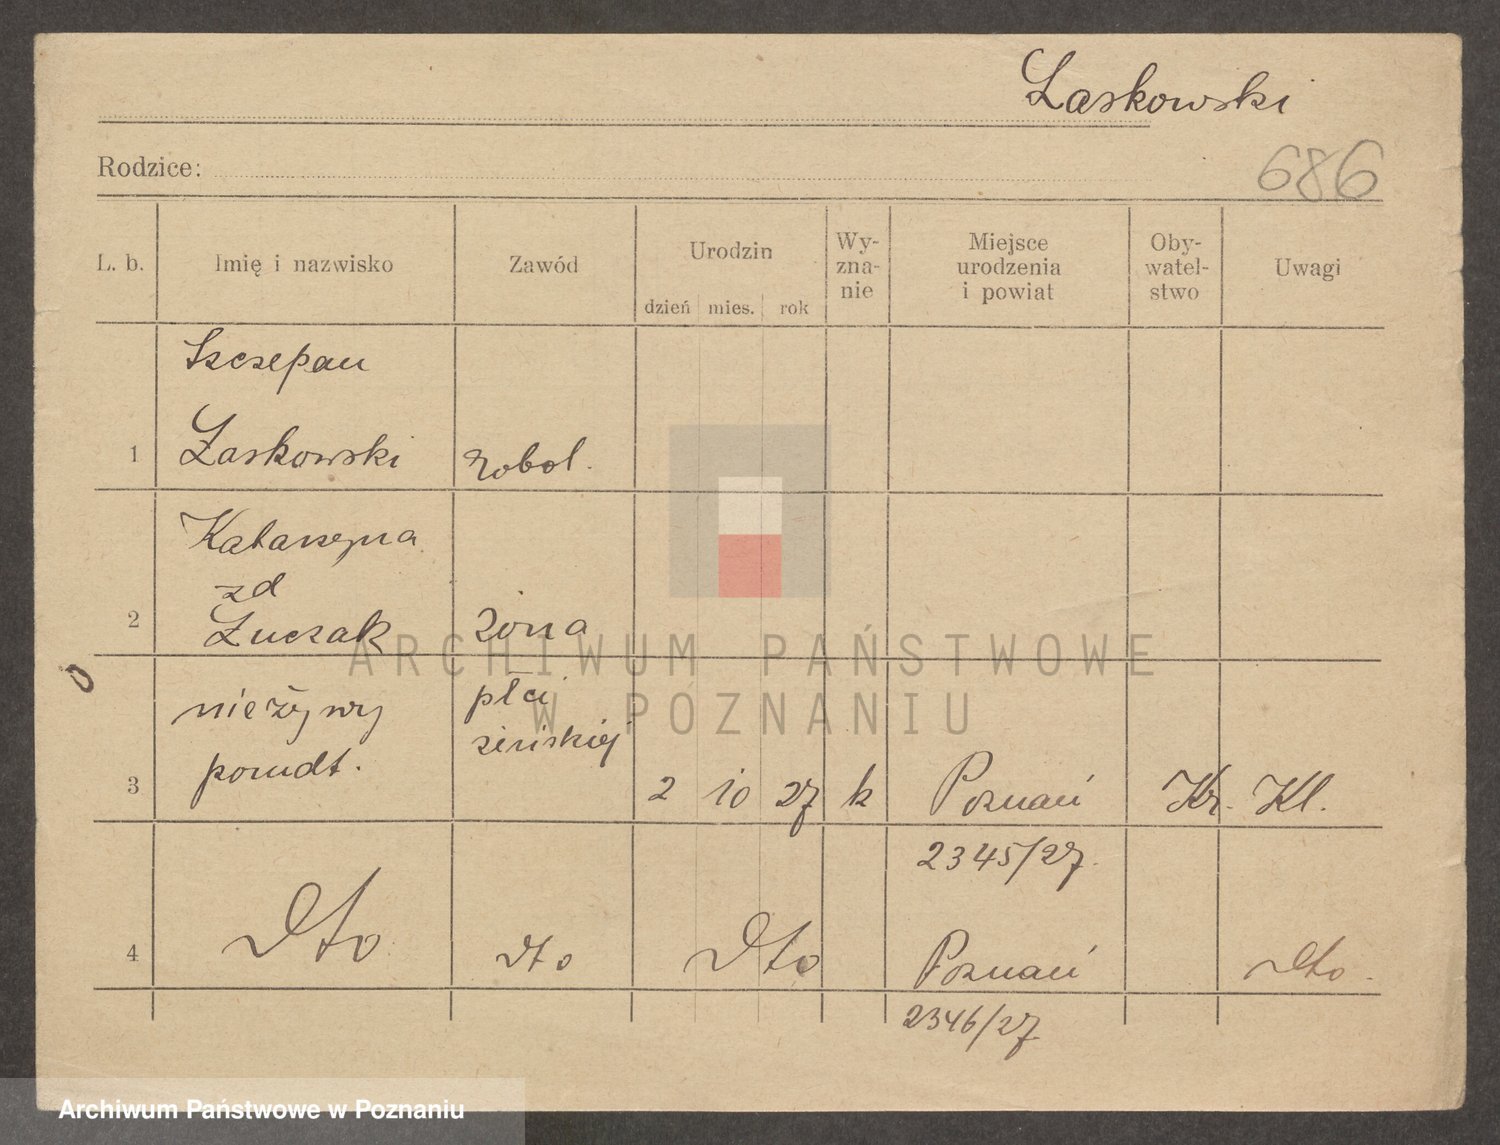 Łaskowski
Rodzice:
686
L. b. Imię i nazwisko Zawód Urodzin Wyznanie Miejsce urodzenia i powiat Obywatelstwo Uwagi
dzień mies. rok
Szczepan
1 Łaskowski robot.
Katarzyna
zd
2 Łuczak żona
nieżywy płci
poród. żeńskiej
3 2 10 27 k Poznań Kr. Kl.
2345/27.
4 dto dto dto Poznań dto.
2346/27
ARCHIWUM PAŃSTWOWE
W POZNANIU
Archiwum Państwowe w Poznaniu